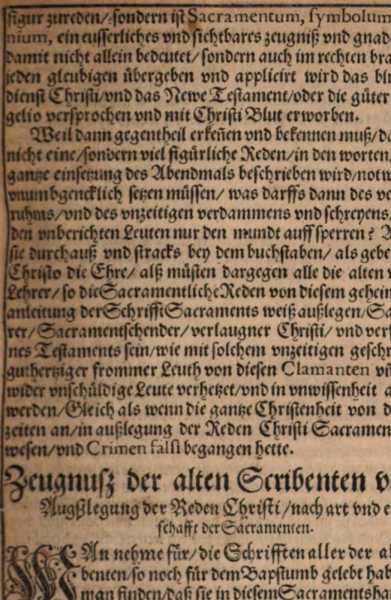 figur zureden/sondern ist Sacramentum, symbolum
nium, ein eusserliches vnd sichtbares zeugniß vnd gnad
damit nicht allein bedeutet/sondern auch im rechten bra
jeden gleubigen übergeben vnd applicirt wird das blu
dienst Christi/vnd das Newe Testament/oder die güter
gelio versprochen vnd mit Christi Blut erworben.
Weil dann gegentheil erkeñen vnd bekennen muß/da
nicht eine/sondern viel figürliche Reden/in den worten
gantze einsetzung des Abendmals beschrieben wird/notw
vnumbgencklich setzen müssen/was darffs dann des ve
ruhms/vnd des vnzeitigen verdammens vnd schreyens
den vnberichten Leuten nur den mundt auff sperren? A
sie durchauß vnd stracks bey dem buchstaben/als gebe
Christo die Ehre/alß müsten dargegen alle die alten
Lehrer/so die Sacramentliche Reden von diesem geheim
anleitung der Schrifft Sacraments weiß außlegen/Sa
rer/Sacramentschender/verlaugner Christi/vnd verf
nes Testaments sein/wie mit solchem vnzeitigen geschr
guthertziger frommer Leuth von diesen Clamanten vñ
wider vnschüldige Leute verhetzet/vnd in vnwissenheit
werden/Gleich als wenn die gantze Christenheit von d
zeiten an/in außlegung der Reden Christi Sacramen
wesen/vnd Crimen falsi begangen hette.
Zeugnusz der alten Scribenten v
Außlegung der Reden Christi/nach art vnd e
schafft der Sacramenten.
MAn nehme für/die Schrifften aller der al
benten/so noch für dem Bapstumb gelebt hab
man finden/daß sie in diesem Sacramentsha